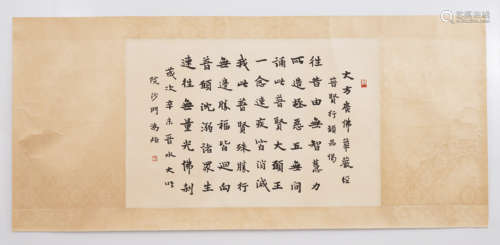 大方廣佛華嚴經
普賢行願品偈
往昔由無智慧力
所造極惡五無間
誦此普賢大願王
一念速疾皆消滅
我此普賢殊勝行
無邊勝福皆迴向
普願沈溺諸眾生
速往無量光佛剎
歲次辛未晉水大
院沙門